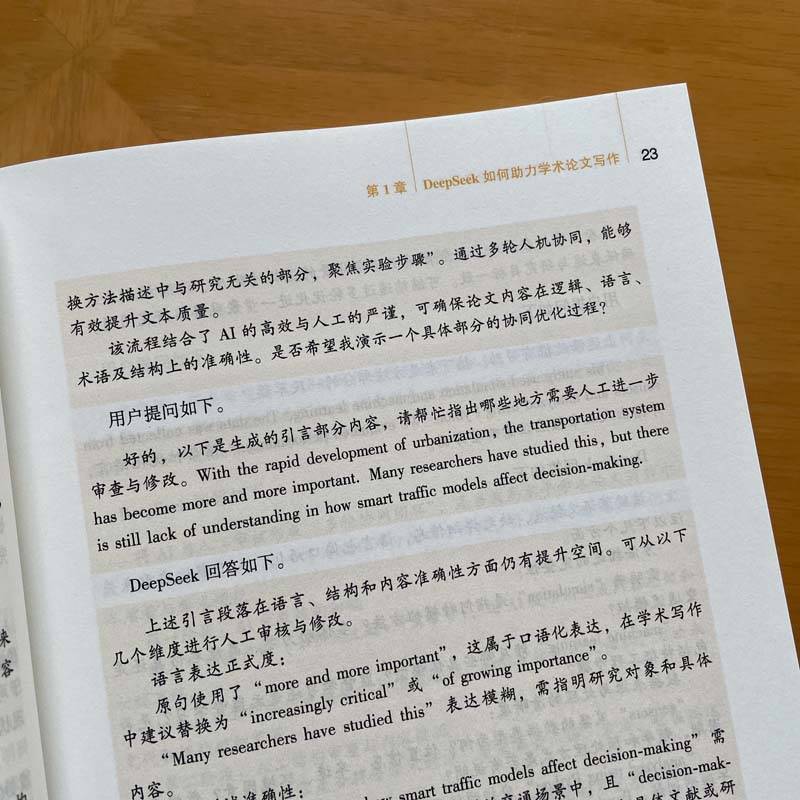 第 1 章 DeepSeek 如何助力学术论文写作 23
换方法描述中与研究无关的部分，聚焦实验步骤”。通过多轮人机协同，能够
有效提升文本质量。
该流程结合了 AI 的高效与人工的严谨，可确保论文内容在逻辑、语言、
术语及结构上的准确性。是否希望我演示一个具体部分的协同优化过程？
用户提问如下。
好的，以下是生成的引言部分内容，请帮忙指出哪些地方需要人工进一步
审查与修改。With the rapid development of urbanization, the transportation system
has become more and more important. Many researchers have studied this, but there
is still lack of understanding in how smart traffic models affect decision-making.
DeepSeek 回答如下。
上述引言段落在语言、结构和内容准确性方面仍有提升空间。可从以下
几个维度进行人工审核与修改。
语言表达正式度：
原句使用了“more and more important”，这属于口语化表达，在学术写作
中建议替换为“increasingly critical”或“of growing importance”。
“Many researchers have studied this”表达模糊，需指明研究对象和具体
内容。
准确性：
how smart traffic models affect decision-making”需
交通场景中，且“decision-mak-
具体文献或研
来
容